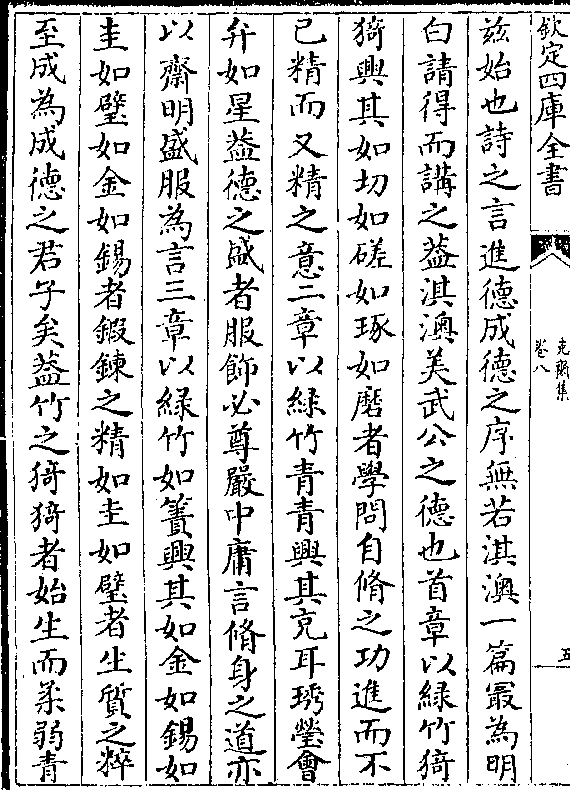 欽定四庫全書
克齋集
卷八
五
兹始也詩之言進德成德之序無若淇澳一篇最為明
白請得而講之葢淇澳美武公之德也首章以緑竹猗
猗興其如切如磋如琢如磨者學問自脩之功進而不
已精而又精之意二章以緑竹青青興其充耳琇瑩會
弁如星葢德之盛者服飾必尊嚴中庸言脩身之道亦
以齋明盛服為言三章以緑竹如簀興其如金如錫如
圭如璧如金如錫者鍜鍊之精如圭如璧者生質之粹
至成為成德之君子矣葢竹之猗猗者始生而柔弱青